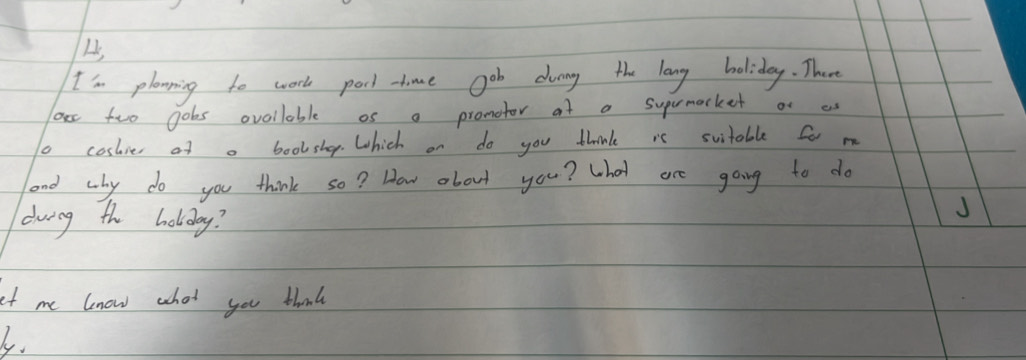 Hi,
I'm planning to work part-time job during the long holiday. There
are two jobs available as a promotor at a supermarket or as
a cashier at a bookshop. Which on do you think is suitable for me
and why do you think so? How about you? What are going to do
during the holiday?
et me know what you think
ly.